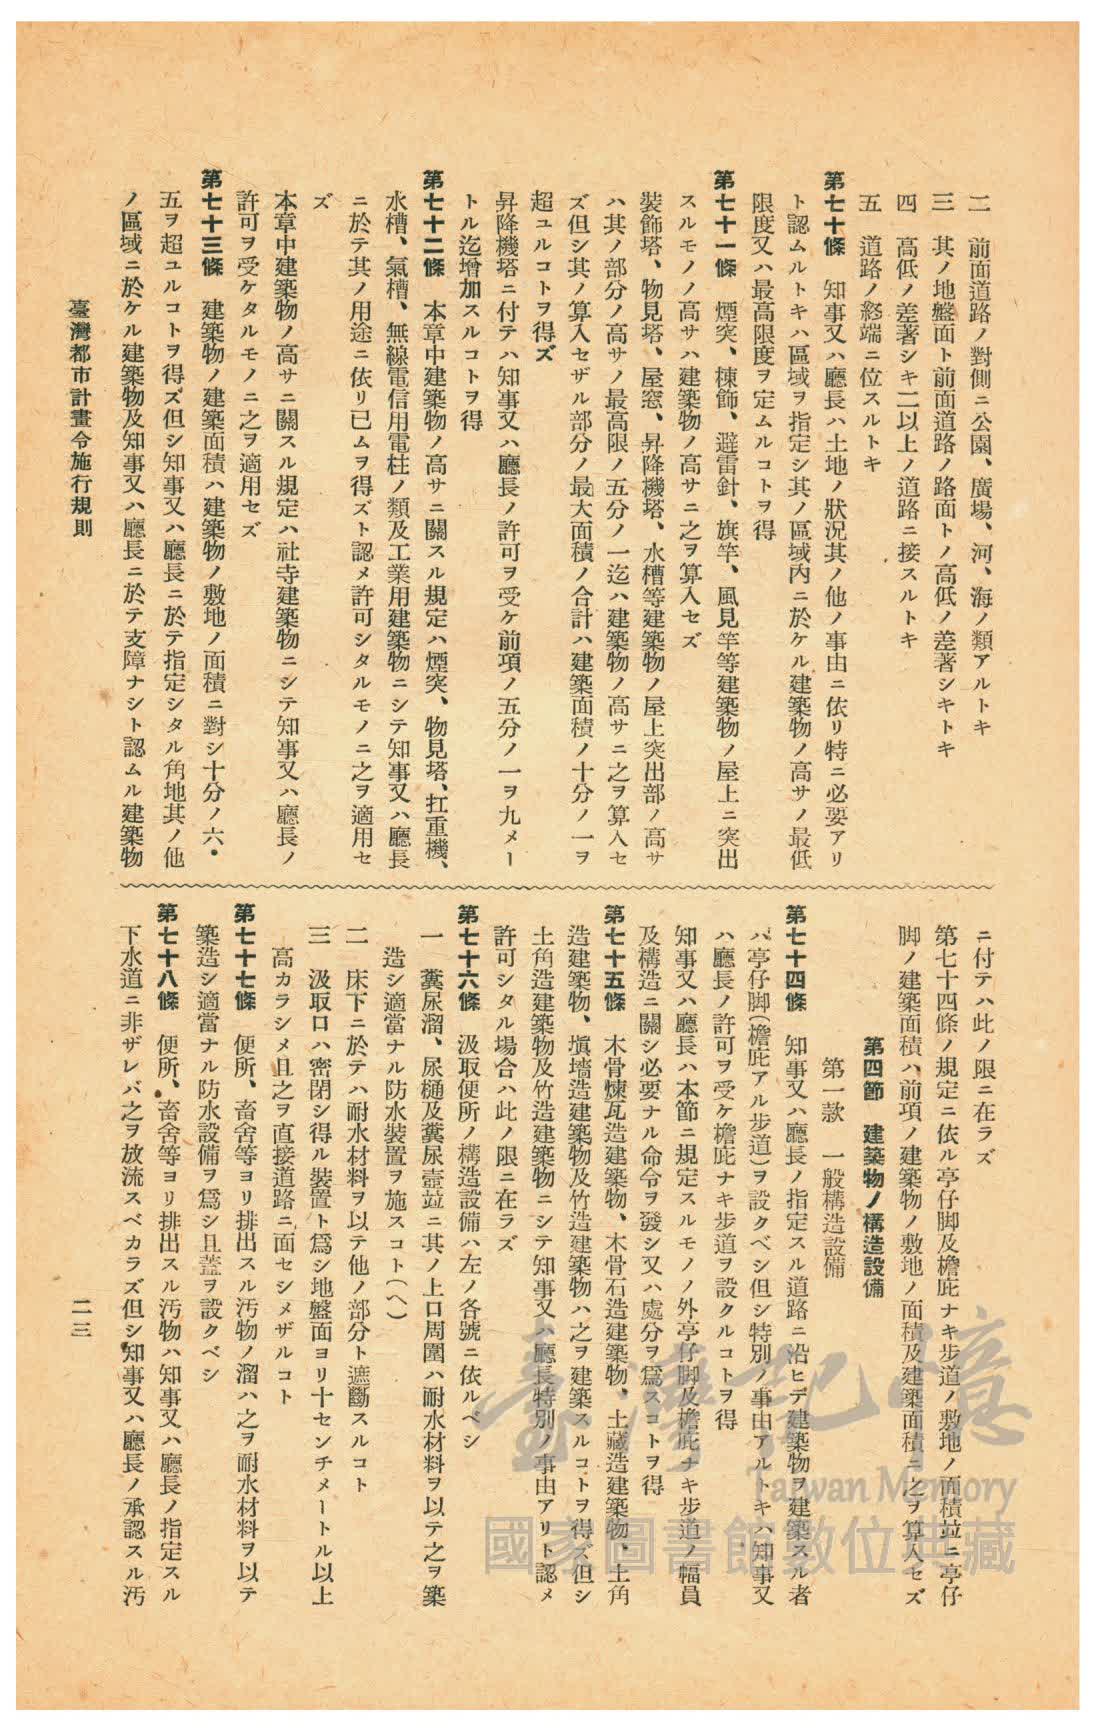 二　前面道路ノ對側ニ公園、廣場、河、海ノ類アルトキ
三　其ノ地盤面ト前面道路ノ路面トノ高低ノ差著シキトキ
四　高低ノ差著シキ二以上ノ道路ニ接スルトキ
五　道路ノ終端ニ位スルトキ
第七十條　知事又ハ廳長ハ土地ノ狀況其ノ他ノ事由ニ依リ特ニ必要アリ
ト認ムルトキハ區域ヲ指定シ其ノ區域內ニ於ケル建築物ノ高サノ最低
限度又ハ最高限度ヲ定ムルコトヲ得
第七十一條　煙突、棟飾、避雷針、旗竿、風見竿等建築物ノ屋上ニ突出
スルモノノ高サハ建築物ノ高サニ之ヲ算入セズ
裝飾塔、物見塔、屋窓、昇降機塔、水槽等建築物ノ屋上突出部ノ高サ
ハ其ノ部分ノ高サノ最高限ノ五分ノ一迄ハ建築物ノ高サニ之ヲ算入セ
ズ但シ其ノ算入セザル部分ノ最大面積ノ合計ハ建築面積ノ十分ノ一ヲ
超ユルコトヲ得ズ
昇降機塔ニ付テハ知事又ハ廳長ノ許可ヲ受ケ前項ノ五分ノ一ヲ九メー
トル迄增加スルコトヲ得
第七十二條　本章中建築物ノ高サニ關スル規定ハ煙突、物見塔、扛重機、
水槽、氣槽、無線電信用電柱ノ類及工業用建築物ニシテ知事又ハ廳長
ニ於テ其ノ用途ニ依リ已ムヲ得ズト認メ許可シタルモノニ之ヲ適用セ
ズ
本章中建築物ノ高サニ關スル規定ハ社寺建築物ニシテ知事又ハ廳長ノ
許可ヲ受ケタルモノニ之ヲ適用セズ
第七十三條　建築物ノ建築面積ハ建築物ノ敷地ノ面積ニ對シ十分ノ六・
五ヲ超ユルコトヲ得ズ但シ知事又ハ廳長ニ於テ指定シタル角地其ノ他
ノ區域ニ於ケル建築物及知事又ハ廳長ニ於テ支障ナシト認ムル建築物
ニ付テハ此ノ限ニ在ラズ
第七十四條ノ規定ニ依ル亭仔脚及檐庇ナキ步道ノ敷地ノ面積竝ニ亭仔
脚ノ建築面積ハ前項ノ建築物ノ敷地ノ面積及建築面積ニ之ヲ算入セズ
第四節　建築物ノ構造設備
第一款　一般構造設備
第七十四條　知事又ハ廳長ノ指定スル道路ニ沿ヒテ建築物ヲ建築スル者
ハ亭仔脚(檐庇アル步道)ヲ設クベシ但シ特別ノ事由アルトキハ知事又
ハ廳長ノ許可ヲ受ケ檐庇ナキ步道ヲ設クルコトヲ得
知事又ハ廳長ハ本節ニ規定スルモノノ外亭仔脚及檐庇ナキ步道ノ幅員
及構造ニ關シ必要ナル命令ヲ發シ又ハ處分ヲ爲スコトヲ得
第七十五條　木骨煉瓦造建築物、木骨石造建築物、土藏造建築物、土角
造建築物、塡墻造建築物及竹造建築物ハ之ヲ建築スルコトヲ得ズ但シ
土角造建築物及竹造建築物ニシテ知事又ハ廳長特別ノ事由アリト認メ
許可シタル場合ハ此ノ限ニ在ラズ
第七十六條　汲取便所ノ構造設備ハ左ノ各號ニ依ルベシ
一　糞尿溜、尿樋及糞尿壺竝ニ其ノ上口周圍ハ耐水材料ヲ以テ之ヲ築
造シ適當ナル防水裝置ヲ施スコト(ヘ)
二　床下ニ於テハ耐水材料ヲ以テ他ノ部分ト遮斷スルコト
三　汲取口ハ密閉シ得ル裝置ト爲シ地盤面ヨリ十センチメートル以上
高カラシメ且之ヲ直接道路ニ面セシメザルコト
第七十七條　便所、畜舍等ヨリ排出スル汚物ノ溜ハ之ヲ耐水材料ヲ以テ
築造シ適當ナル防水設備ヲ爲シ且蓋ヲ設クベシ
第七十八條　便所、畜舍等ヨリ排出スル汚物ハ知事又ハ廳長ノ指定スル
下水道ニ非ザレバ之ヲ放流スベカラズ但シ知事又ハ廳長ノ承認スル汚
臺灣都市計畫令施行規則
二三
臺灣記憶
Taiwan Memory
國家圖書館數位典藏